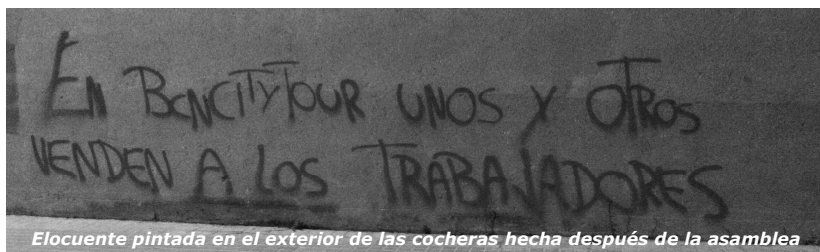 EN BCNCITYTOUR UNOS Y OTROS
VENDEN A LOS TRABAJADORES
Elocuente pintada en el exterior de las cocheras hecha después de la asamblea